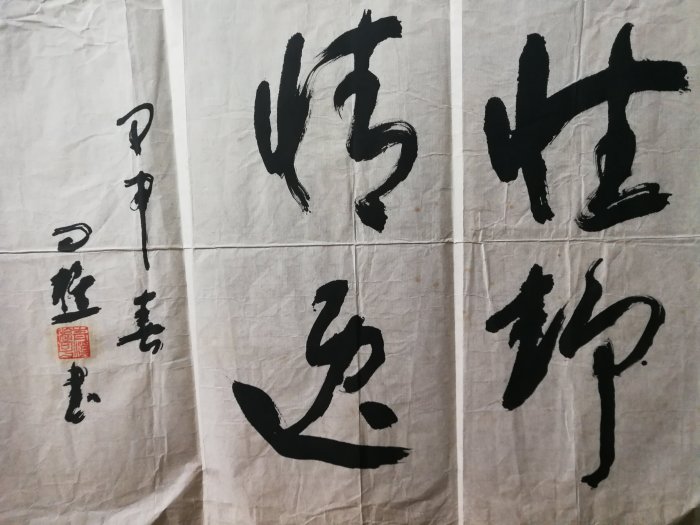 性静
情逸
甲申春
书